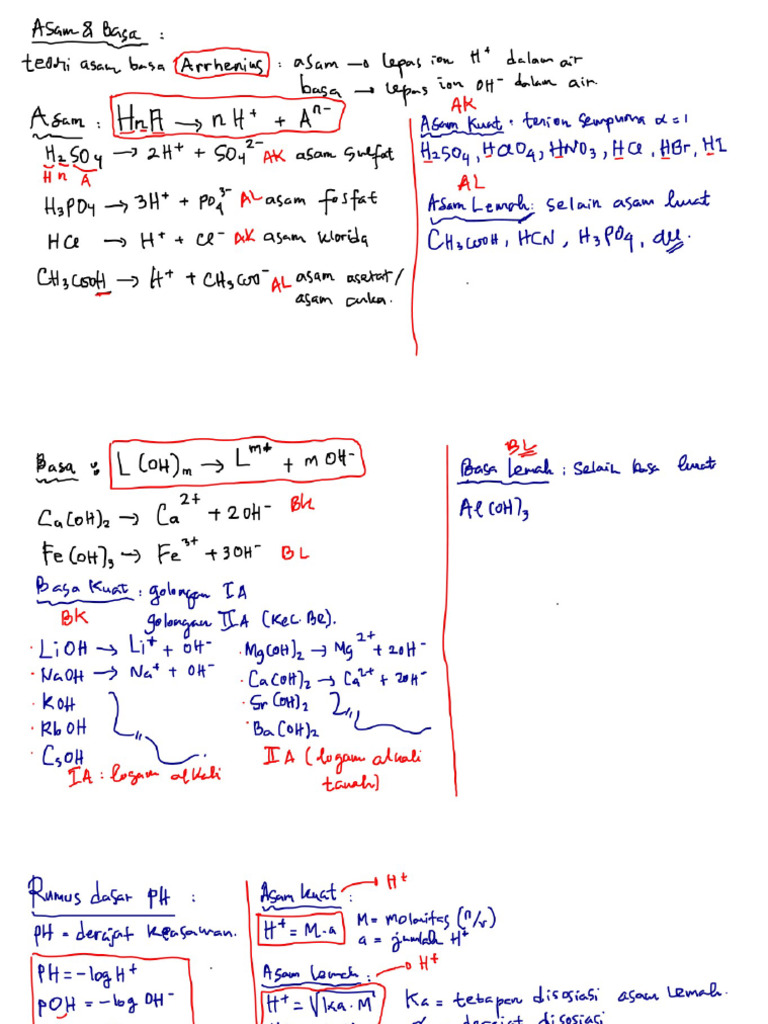 Asam & Basa :
teori asam basa Arrhenius : asam → lepas ion H⁺ dalam air
basa → lepas ion OH⁻ dalam air.
Asam : HnA → n H⁺ + Aⁿ⁻
H₂SO₄ → 2H⁺ + SO₄²⁻ AK asam sulfat
H n A
H₃PO₄ → 3H⁺ + PO₄³⁻ AL asam fosfat
HCl → H⁺ + Cl⁻ AK asam klorida
CH₃COOH → H⁺ + CH₃COO⁻ AL asam asetat/
asam cuka.
AK
Asam Kuat : terion sempurna α = 1
H₂SO₄, HClO₄, HNO₃, HCl, HBr, HI
AL
Asam Lemah : selain asam kuat
CH₃COOH, HCN, H₃PO₄, dll
Basa : L(OH)m → Lᵐ⁺ + m OH⁻
Ca(OH)₂ → Ca²⁺ + 2OH⁻ Bk
Fe(OH)₃ → Fe³⁺ + 3OH⁻ BL
Basa Kuat : golongan IA
BK golongan IIA (kec. Be).
· LiOH → Li⁺ + OH⁻
· NaOH → Na⁺ + OH⁻
· KOH
· RbOH
· CsOH
IA : logam alkali
· Mg(OH)₂ → Mg²⁺ + 2OH⁻
· Ca(OH)₂ → Ca²⁺ + 2OH⁻
· Sr(OH)₂
· Ba(OH)₂
IIA (logam alkali
tanah)
BL
Basa Lemah : selain basa kuat
Al(OH)₃
Rumus dasar PH :
PH = derajat keasaman.
PH = -log H⁺
pOH = -log OH⁻
Asam kuat : → H⁺
H⁺ = M.a
M = molaritas (n/v)
a = jumlah H⁺
Asam Lemah : → H⁺
H⁺ = √ka.M
Ka = tetapan disosiasi asam lemah.
α = derajat disosiasi